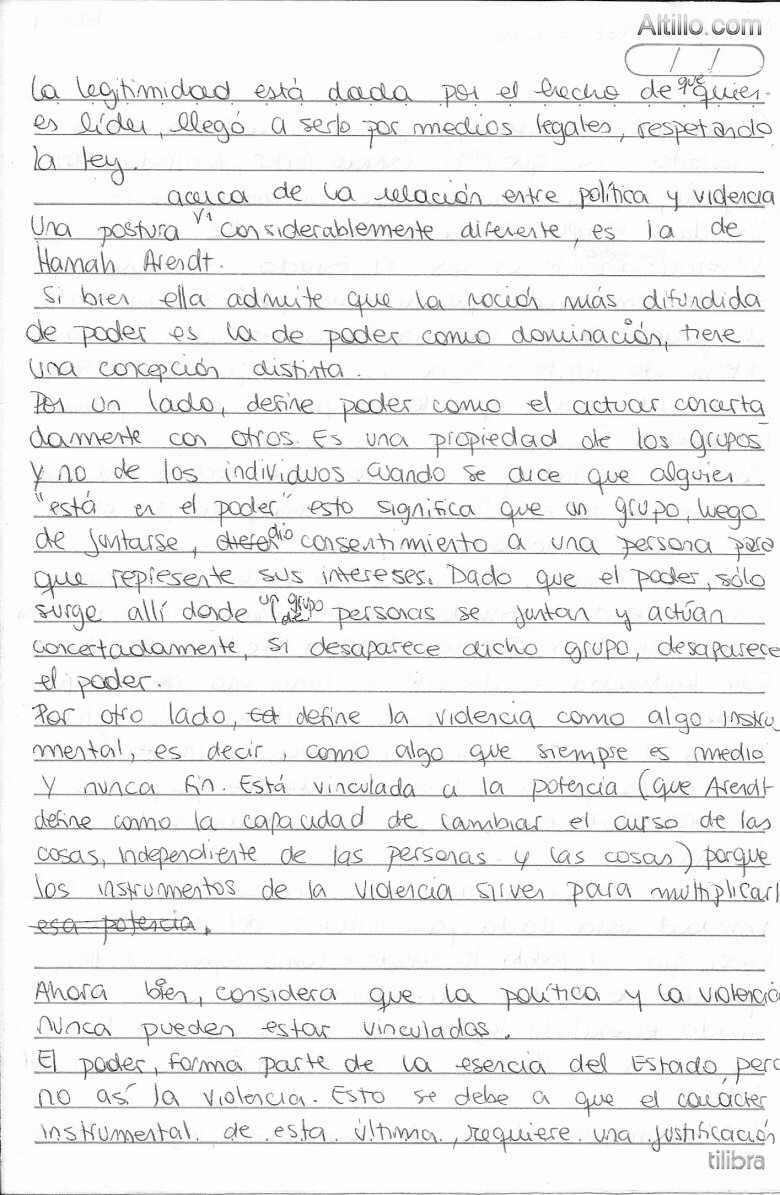 Altillo.com
/ /
La legitimidad está dada por el hecho de que quien
es líder, llegó a serlo por medios legales, respetando
la ley.
acerca de la relación entre política y violencia
Una postura V1 considerablemente diferente, es la de
Hannah Arendt.
Si bien ella admite que la noción más difundida
de poder es la de poder como dominación, tiene
una concepción distinta.
Por un lado, define poder como el actuar concerta
damente con otros. Es una propiedad de los grupos
y no de los individuos. Cuando se dice que alguien
"está en el poder" esto significa que un grupo, luego
de juntarse, dio consentimiento a una persona para
que represente sus intereses. Dado que el poder, sólo
surge allí donde un grupo de personas se juntan y actúan
concertadamente, si desaparece dicho grupo, desaparece
el poder.
Por otro lado, define la violencia como algo instru
mental, es decir, como algo que siempre es medio
y nunca fin. Está vinculada a la potencia (que Arendt
define como la capacidad de cambiar el curso de las
cosas, independiente de las personas y las cosas) porque
los instrumentos de la violencia sirven para multiplicarl
esa potencia.
Ahora bien, considera que la política y la violencia
nunca pueden estar vinculadas.
El poder, forma parte de la esencia del Estado, pero
no así la violencia. Esto se debe a que el carácter
instrumental de esta última, requiere una justificación
tilibra